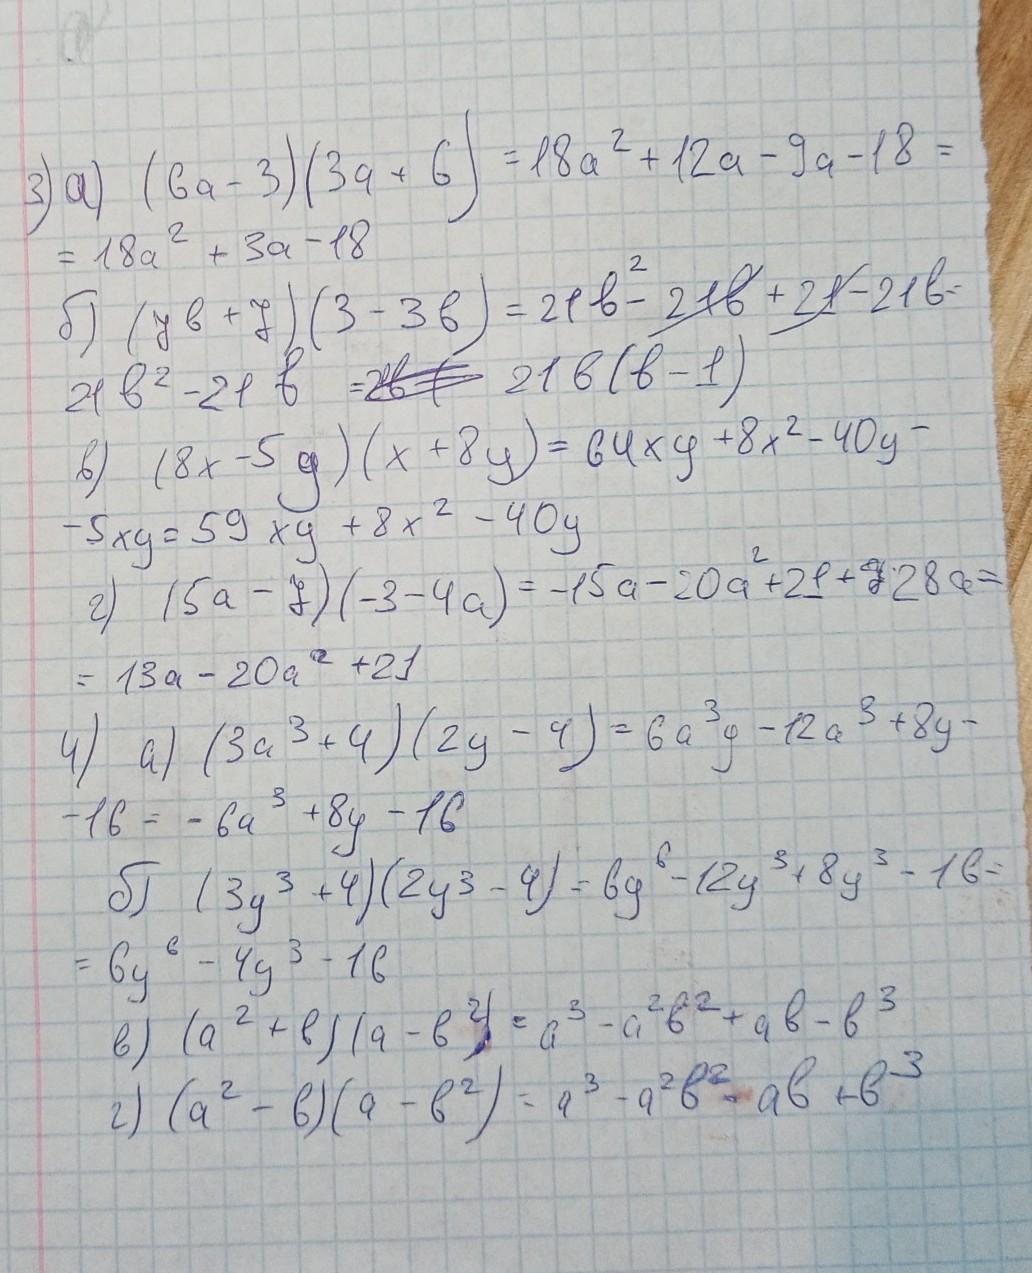 3) а) (6a - 3)(3a + 6) = 18a² + 12a - 9a - 18 =
= 18a² + 3a - 18
б) (7в + 7)(3 - 3в) = 21в² - 21в + 21 - 21в =
21в² - 21в = 21в(в - 1)
в) (8x - 5y)(x + 8y) = 64xy + 8x² - 40y -
- 5xy = 59xy + 8x² - 40y
г) (5a - 7)(-3 - 4a) = -15a - 20a² + 21 + 28a =
= 13a - 20a² + 21
4) а) (3a³ + 4)(2y - 4) = 6a³y - 12a³ + 8y -
- 16 = - 6a³ + 8y - 16
б) (3y³ + 4)(2y³ - 4) = 6y⁶ - 12y³ + 8y³ - 16 =
= 6y⁶ - 4y³ - 16
в) (a² + в)(a - в²) = a³ - a²в² + aв - в³
г) (a² - в)(a - в²) = a³ - a²в² - aв + в³